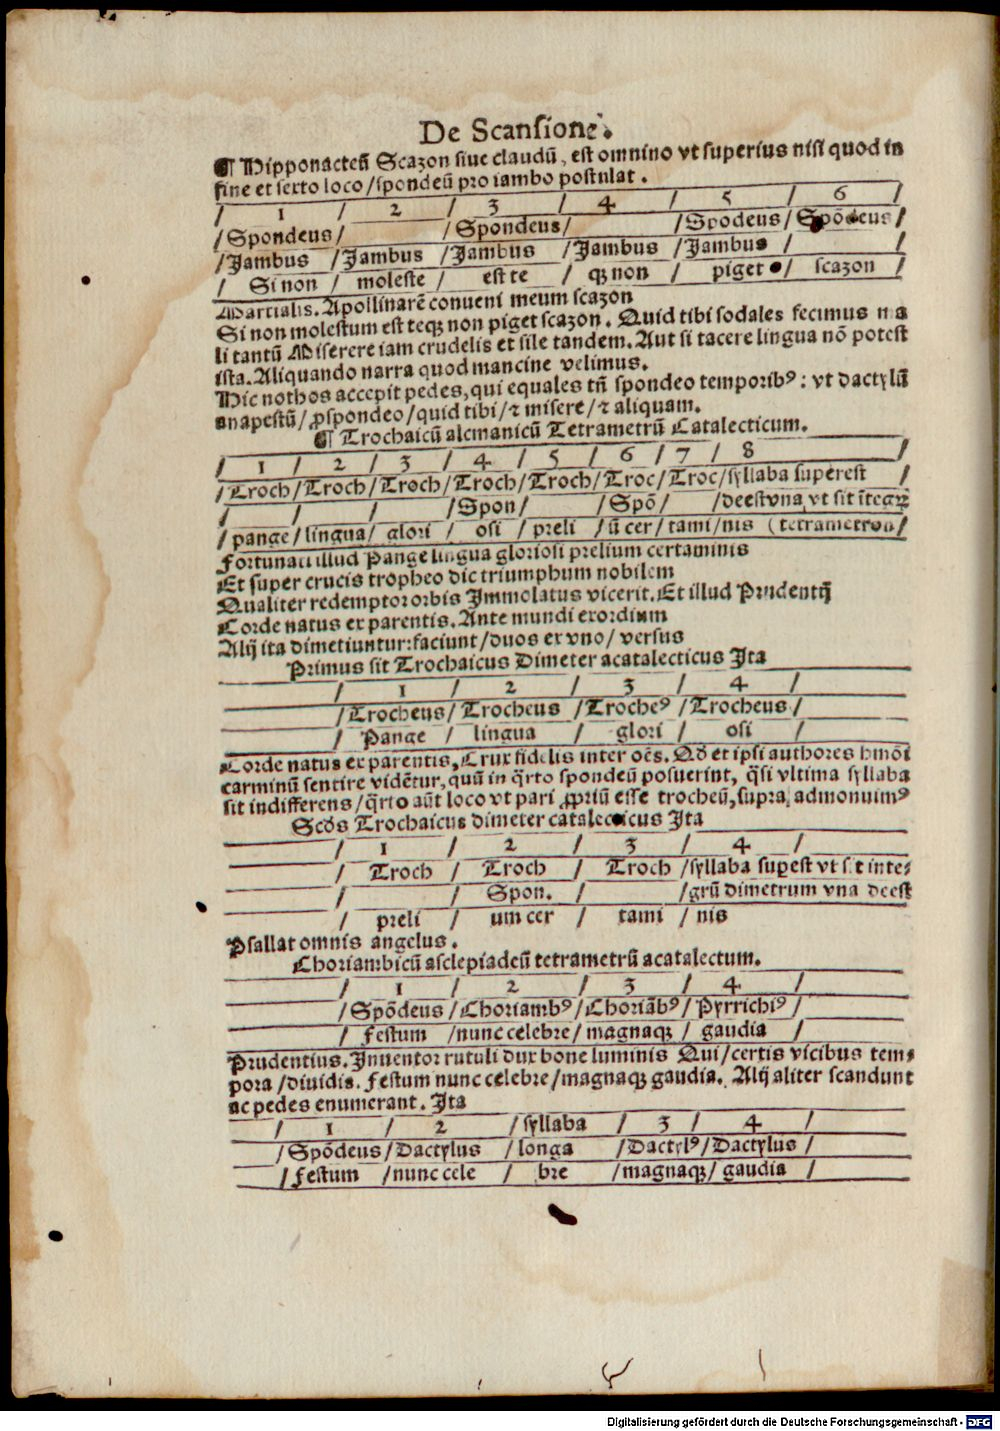 De Scansione.
¶ Hipponacteū Scazon siue claudū, est omnino vt superius nisi quod in
fine et sexto loco / spondeū pro iambo postulat.
/ 1 / 2 / 3 / 4 / 5 / 6 /
/ Spondeus / / Spondeus / / Spodeus / Spōdeus /
/ Jambus / Jambus / Jambus / Jambus / Jambus / /
/ Si non / moleste / est te / qꝫ non / piget / scazon /
Martialis. Apollinarē conueni meum scazon
Si non molestum est teqꝫ non piget scazon. Quid tibi sodales fecimus ma
li tantū Miserere iam crudelis et sile tandem. Aut si tacere lingua nō potest
ista. Aliquando narra quod mancine velimus.
Hic nothos accepit pedes, qui equales tn̄ spondeo temporibꝰ : vt dactylū
anapestū / ꝓspondeo / quid tibi / ⁊ misere / ⁊ aliquam.
¶ Trochaicū alcmanicū Tetrametrū Catalecticum.
/ 1 / 2 / 3 / 4 / 5 / 6 / 7 / 8 /
/ Troch / Troch / Troch / Troch / Troch / Troc / Troc / syllaba superest /
/ / / / Spon / / Spō / / deest vna, vt sit ītegꝝ
/ pange / lingua / glori / osi / preli / ū cer / tami / nis ( tetrametron /
Fortunati illud Pange lingua gloriosi prelium certaminis
Et super crucis tropheo dic triumphum nobilem
Qualiter redemptor orbis Immolatus vicerit. Et illud Prudentij
Corde natus ex parentis. Ante mundi exordium
Alij ita dimetiuntur: faciunt / duos ex vno / versus
Primus sit Trochaicus Dimeter acatalecticus Ita
/ 1 / 2 / 3 / 4 /
/ Trocheus / Trocheus / Trocheꝰ / Trocheus /
/ Pange / lingua / glori / osi /
Corde natus ex parentis, Crux fidelis inter oēs. Ad et ipsi authores hmōi
carminū sentire vidētur, quū in q̄rto spondeū posuerint, q̄si vltima syllaba
sit indifferens / q̄rto aūt loco vt pari ꝓpriū esse trocheū, supra admonuimꝰ
Scd̄s Trochaicus dimeter catalecticus Ita
/ 1 / 2 / 3 / 4 /
/ Troch / Troch / Troch / syllaba suꝑest vt sit inte-
/ / Spon. / / grū dimetrum vna deest
/ preli / um cer / tami / nis
Psallat omnis angelus.
Choriambicū asclepiadeū tetrametrū acatalectum.
/ 1 / 2 / 3 / 4 /
/ Spōdeus / Choriambꝰ / Choriābꝰ / Pyrrichiꝰ /
/ Festum / nunc celebre / magnaqꝫ / gaudia /
Prudentius. Inuentor rutuli dux bone luminis Qui / certis vicibus tem-
pora / diuidis. Festum nunc celebre / magnaqꝫ gaudia. Alij aliter scandunt
ac pedes enumerant. Ita
/ 1 / 2 / syllaba / 3 / 4 /
/ Spōdeus / Dactylus / longa / Dactylꝰ / Dactylus /
/ Festum / nunc cele / bre / magnaqꝫ / gaudia /
Digitalisierung gefördert durch die Deutsche Forschungsgemeinschaft - DFG